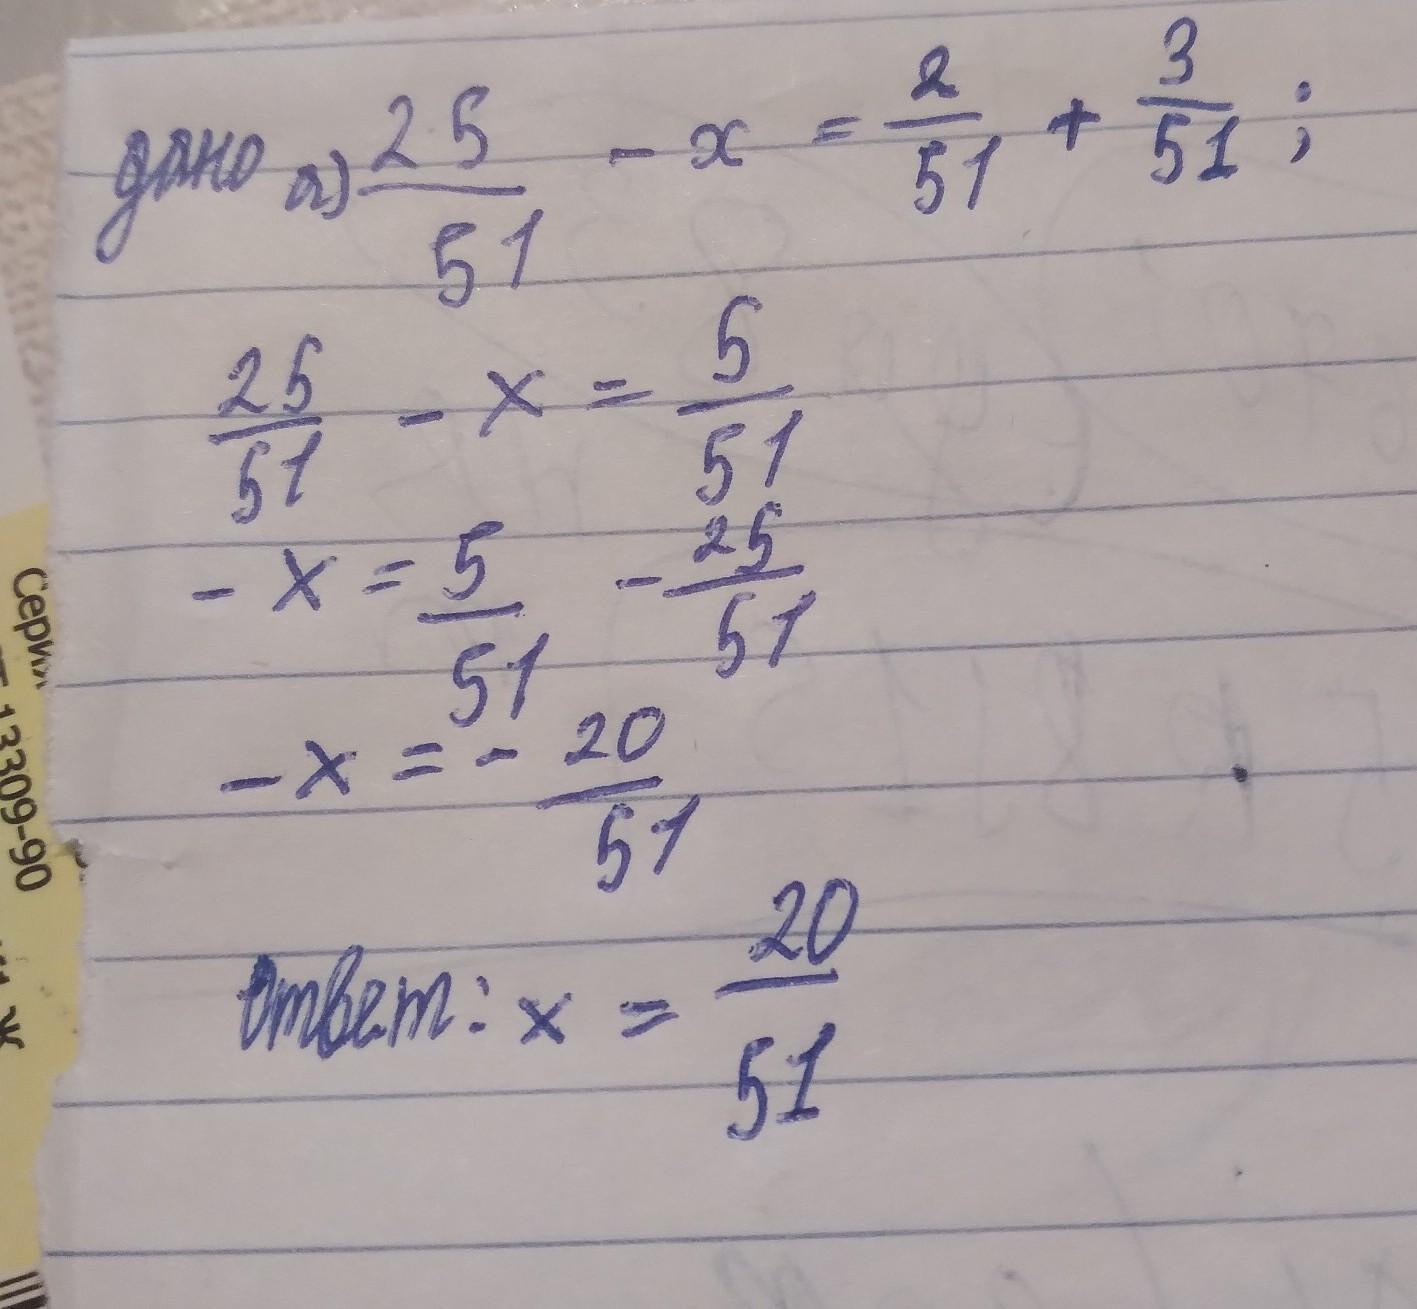 дано а) 25/51 - x = 2/51 + 3/51 ;
25/51 - x = 5/51
- x = 5/51 - 25/51
- x = - 20/51
ответ: x = 20/51
Серия
13309-90